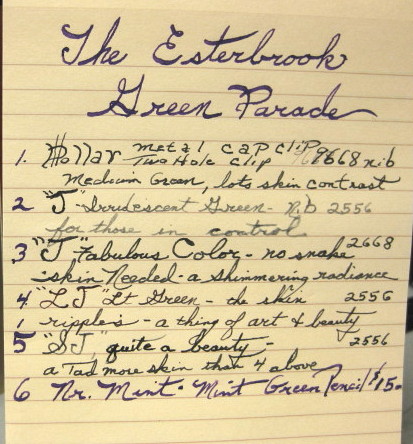 The Esterbrook
Green Parade
1. Dollar metal cap clip
Two Hole clip 9668 nib
Medium Green, lots skin contrast
2 "J" - Irridescent Green - Nib 2556
for those in control
3 "J," fabulous Color - no snake 2668
skin Needed - a shimmering radiance
4 "LJ" Lt Green - the skin 2556
ripples - a thing of art & beauty
5 "SJ," quite a beauty - 2556
a Tad more skin than 4 above
6 Nr. Mint - Mint Green Pencil $15.